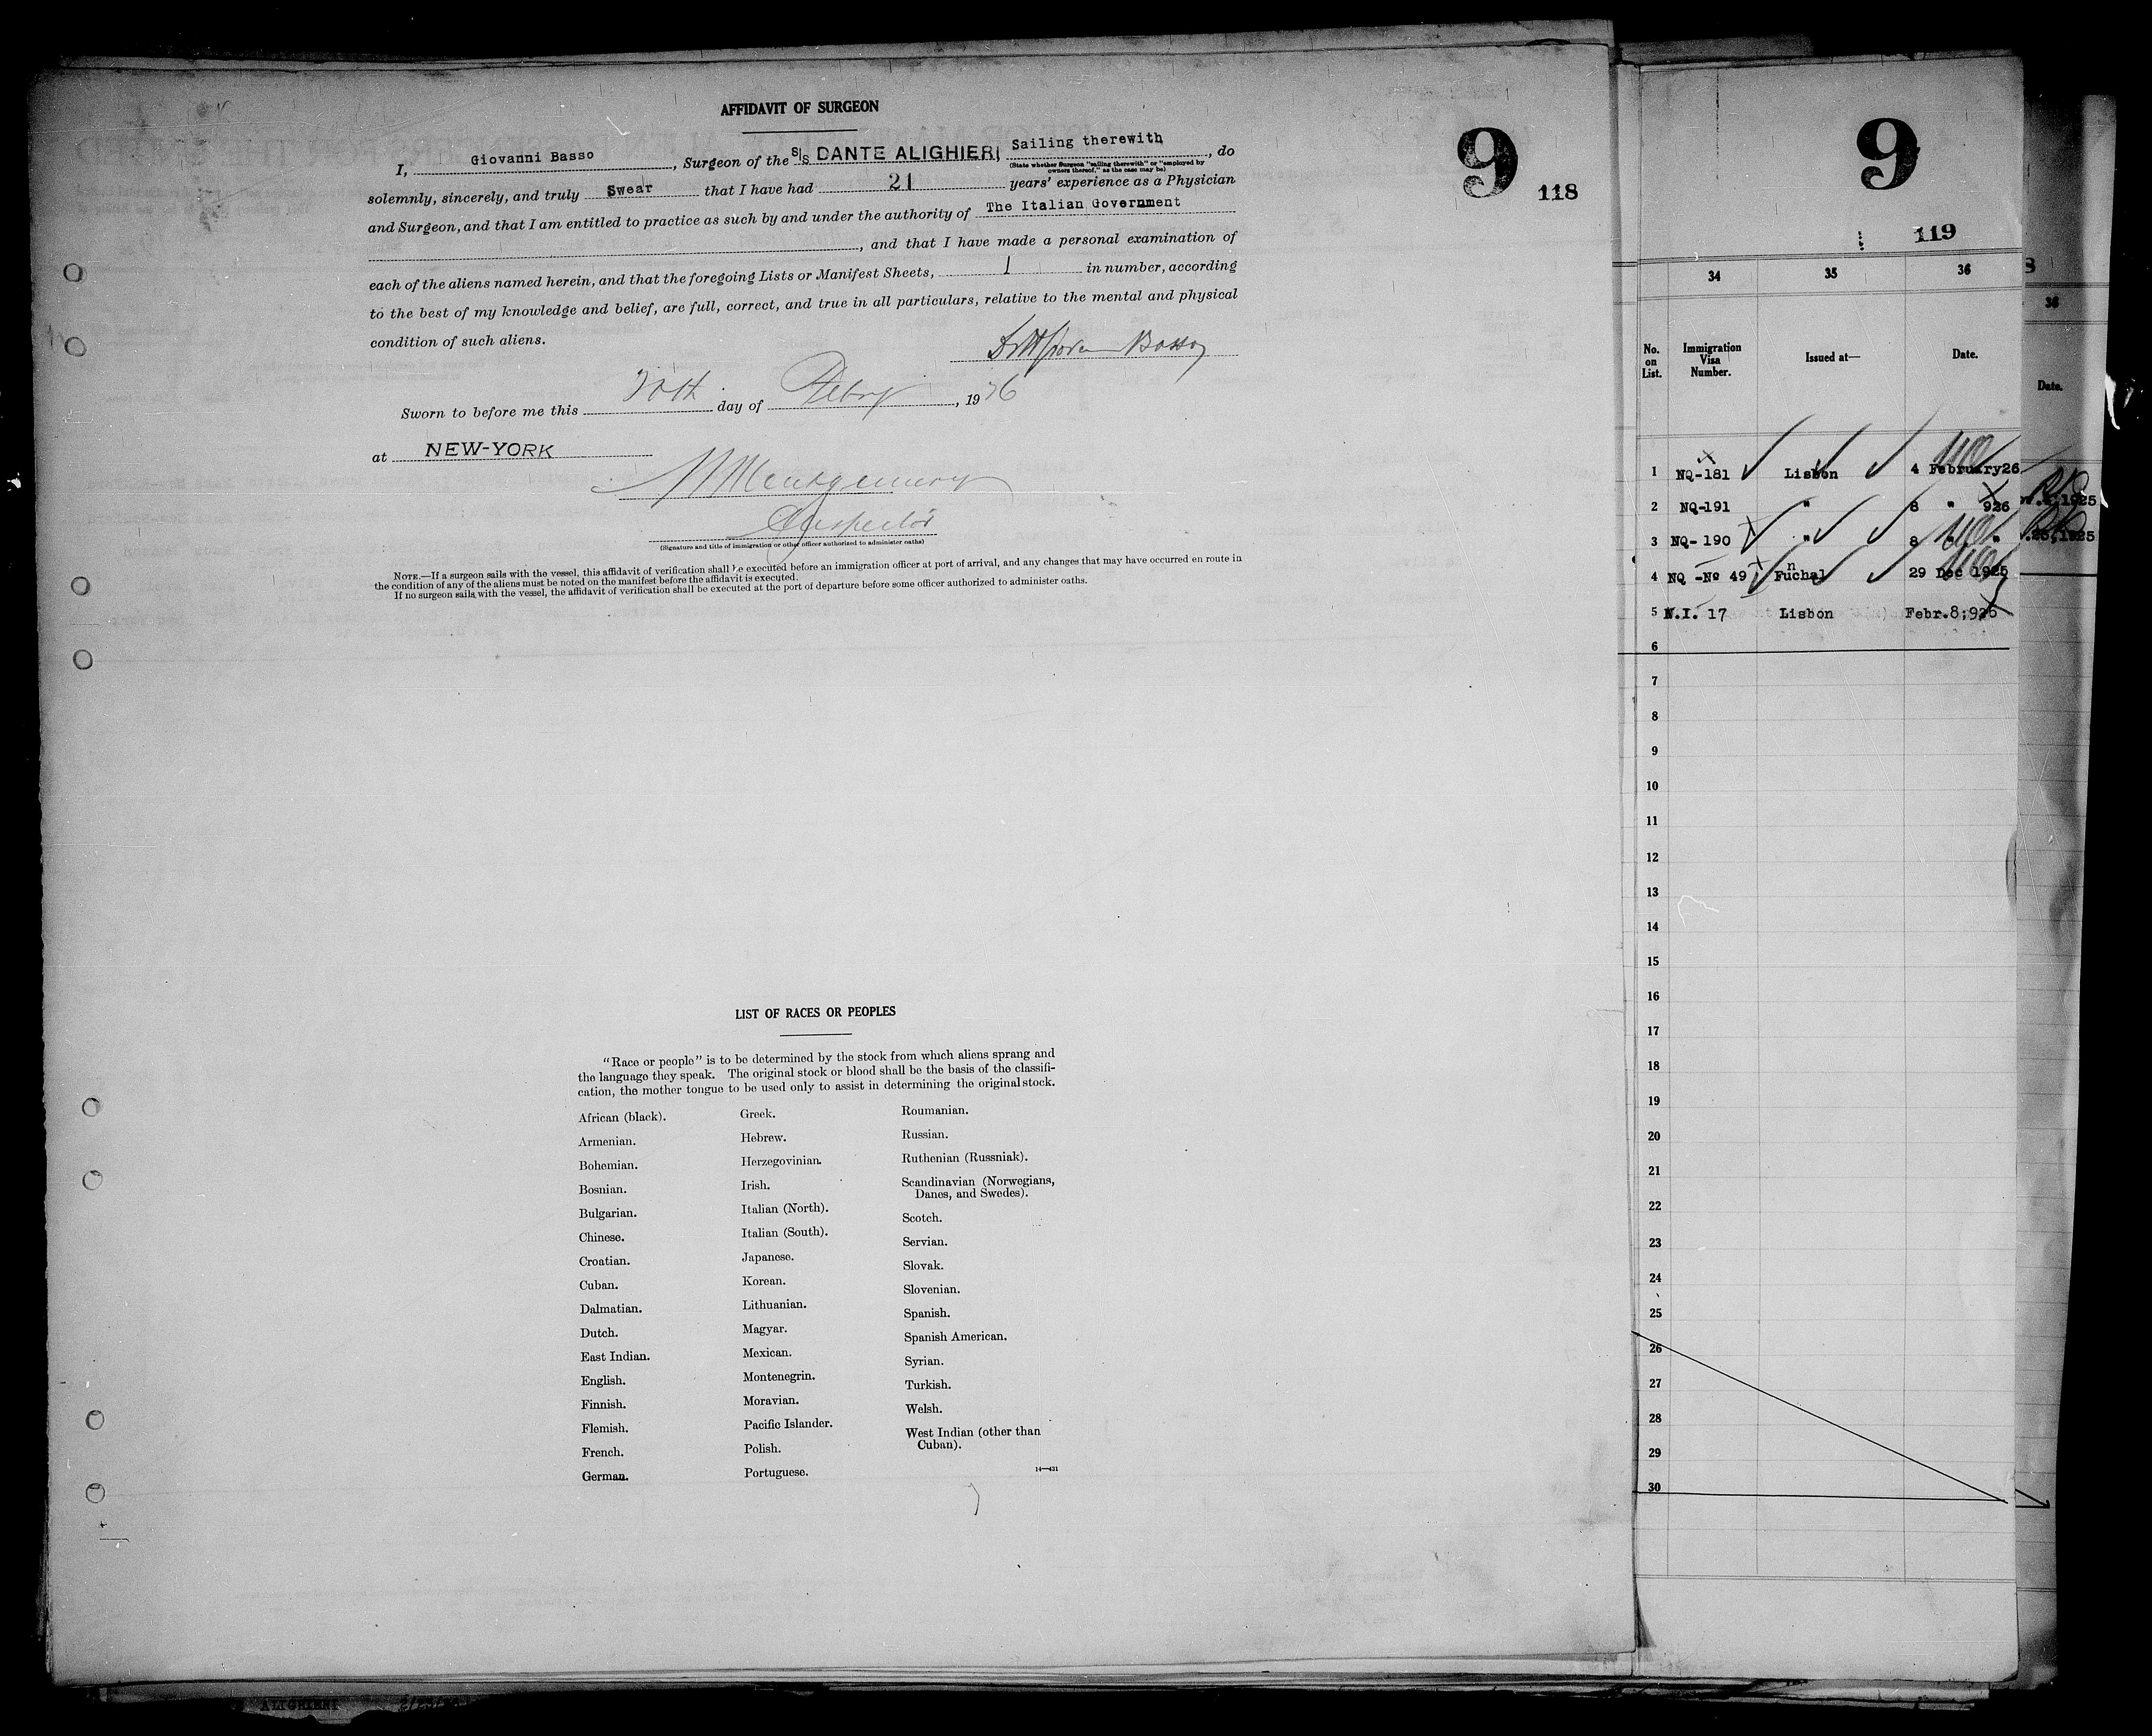 AFFIDAVIT OF SURGEON
9
118
I, Giovanni Basso, Surgeon of the S/S DANTE ALIGHIERI Sailing therewith, do
(State whether Surgeon "sailing therewith" or "employed by
owners thereof," as the case may be)
solemnly, sincerely, and truly Swear that I have had 21 years' experience as a Physician
and Surgeon, and that I am entitled to practice as such by and under the authority of The Italian Government
, and that I have made a personal examination of
each of the aliens named herein, and that the foregoing Lists or Manifest Sheets, 1 in number, according
to the best of my knowledge and belief, are full, correct, and true in all particulars, relative to the mental and physical
condition of such aliens.
Basso
Sworn to before me this day of Febry, 1926
at NEW-YORK
Montgomery
Inspector
(Signature and title of immigration or other officer authorized to administer oaths)
NOTE.—If a surgeon sails with the vessel, this affidavit of verification shall be executed before an immigration officer at port of arrival, and any changes that may have occurred en route in
the condition of any of the aliens must be noted on the manifest before the affidavit is executed.
If no surgeon sails with the vessel, the affidavit of verification shall be executed at the port of departure before some officer authorized to administer oaths.
LIST OF RACES OR PEOPLES
"Race or people" is to be determined by the stock from which aliens sprang and
the language they speak. The original stock or blood shall be the basis of the classifi-
cation, the mother tongue to be used only to assist in determining the original stock.
African (black).
Armenian.
Bohemian.
Bosnian.
Bulgarian.
Chinese.
Croatian.
Cuban.
Dalmatian.
Dutch.
East Indian.
English.
Finnish.
Flemish.
French.
German.
Greek.
Hebrew.
Herzegovinian.
Irish.
Italian (North).
Italian (South).
Japanese.
Korean.
Lithuanian.
Magyar.
Mexican.
Montenegrin.
Moravian.
Pacific Islander.
Polish.
Portuguese.
Roumanian.
Russian.
Ruthenian (Russniak).
Scandinavian (Norwegians,
Danes, and Swedes).
Scotch.
Servian.
Slovak.
Slovenian.
Spanish.
Spanish American.
Syrian.
Turkish.
Welsh.
West Indian (other than
Cuban).
14—431
9
119
34 35 36
No. on List. Immigration Visa Number. Issued at— Date.
1 NQ-181 Lisbon 4 February26
2 NQ-191 " 8 " 926
3 NQ-190 " 8 " "
4 NQ -No 49 Funchal 29 Dec 1925
5 N.I. 17 Lisbon Febr.8;926
6
7
8
9
10
11
12
13
14
15
16
17
18
19
20
21
22
23
24
25
26
27
28
29
30
36
Date.
1925
25,1925
ALIGHIERI